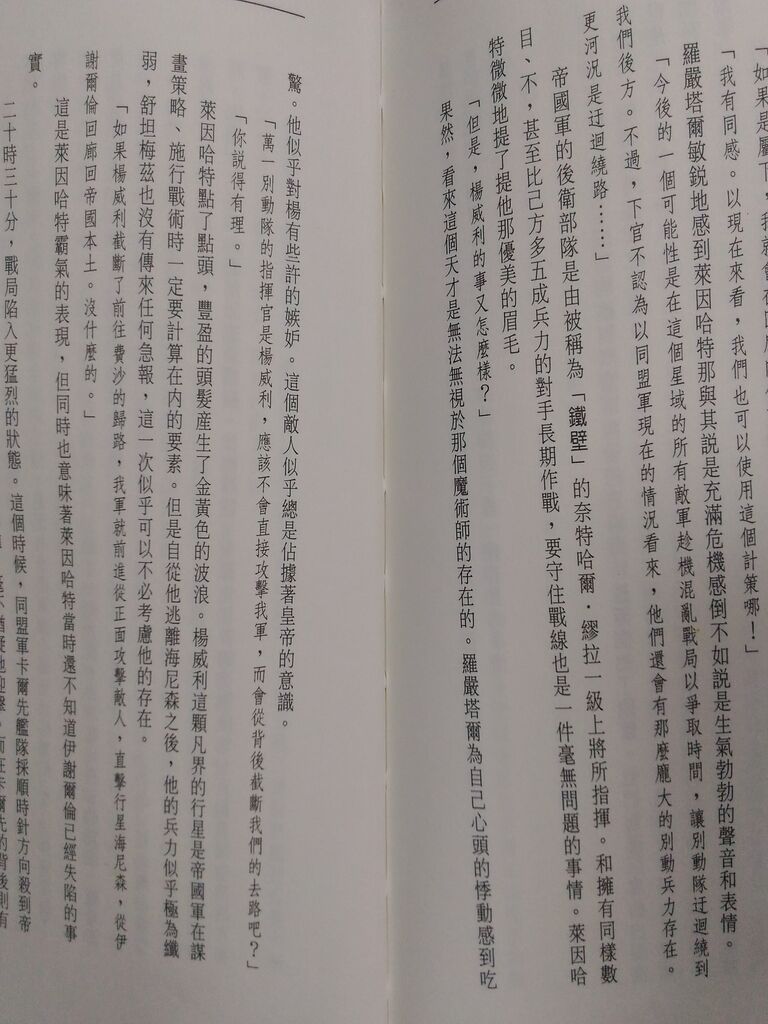 「如果是屬下，我就會在
「我有同感。以現在來看，我們也可以使用這個計策哪！」
羅嚴塔爾敏銳地感到萊因哈特那與其說是充滿危機感倒不如說是生氣勃勃的聲音和表情。
「今後的一個可能性是在這個星域的所有敵軍趁機混亂戰局以爭取時間，讓別動隊迂迴繞到
我們後方。不過，下官不認為以同盟軍現在的情況看來，他們還會有那麼龐大的別動兵力存在。
更河況是迂迴繞路……」
帝國軍的後衛部隊是由被稱為「鐵壁」的奈特哈爾．繆拉一級上將所指揮。和擁有同樣數
目、不，甚至比己方多五成兵力的對手長期作戰，要守住戰線也是一件毫無問題的事情。萊因哈
特微微地提了提他那優美的眉毛。
「但是，楊威利的事又怎麼樣？」
果然，看來這個天才是無法無視於那個魔術師的存在的。羅嚴塔爾為自己心頭的悸動感到吃
驚。他似乎對楊有些許的嫉妒。這個敵人似乎總是佔據著皇帝的意識。
「萬一別動隊的指揮官是楊威利，應該不會直接攻擊我軍，而會從背後截斷我們的去路吧？」
「你說得有理。」
萊因哈特點了點頭，豐盈的頭髮産生了金黃色的波浪。楊威利這顆凡界的行星是帝國軍在謀
畫策略、施行戰術時一定要計算在内的要素。但是自從他逃離海尼森之後，他的兵力似乎極為纖
弱，舒坦梅茲也沒有傳來任何急報，這一次似乎可以不必考慮他的存在。
「如果楊威利截斷了前往費沙的歸路，我軍就前進從正面攻擊敵人，直擊行星海尼森，從伊
謝爾倫回廊回帝國本土。沒什麼的。」
這是萊因哈特霸氣的表現，但同時也意味著萊因哈特當時還不知道伊謝爾倫已經失陷的事
實。
二十時三十分，戰局陷入更猛烈的狀態。這個時候，同盟軍卡爾先艦隊採順時針方向殺到帝